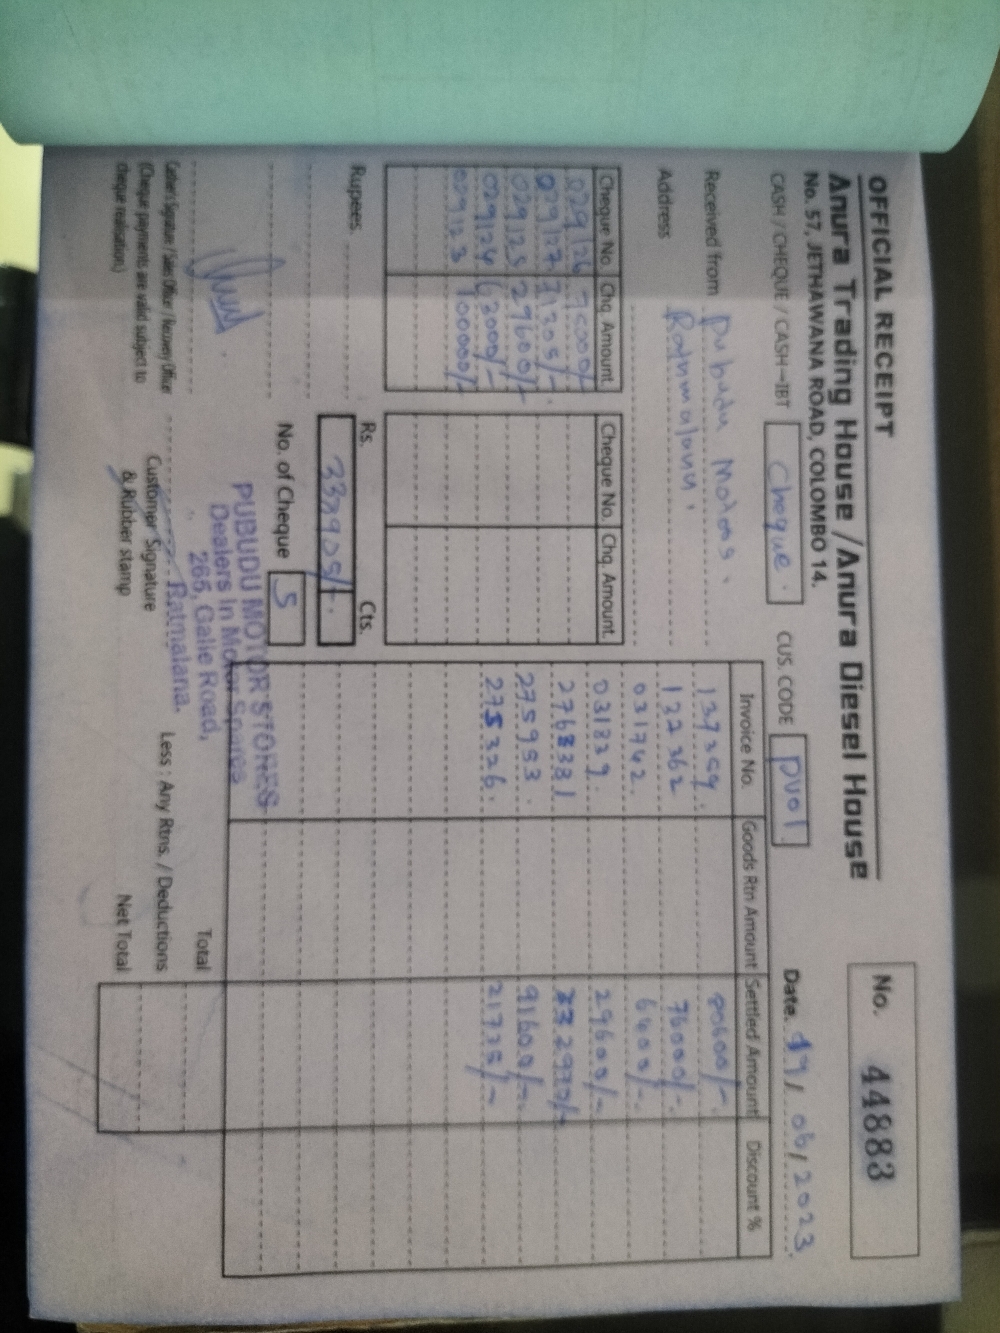 OFFICIAL RECEIPT
No. 44883
Anura Trading House / Anura Diesel House
No. 57, JETHAWANA ROAD, COLOMBO 14.
CASH / CHEQUE / CASH-IBT Cheque. CUS. CODE PU01 Date. 19/06/2023
Received from Pubudu Motors.
Address Ratmalana
Cheque No. Chq. Amount. Cheque No. Chq. Amount.
029126
029127 31305/-
029125 29600/-
029124 62000/-
029123 100000/-
Invoice No. Goods Rtn Amount Settled Amount Discount %
137359. 80600/-
122362 76000/-
031742. 6400/-
031829. 29600/-
2768381
275953. 91600/-
275326. 21775/-
Rupees
Rs. Cts.
332905/-
No. of Cheque 5
PUBUDU MOTOR STORES
Dealers In Motor Spares
265, Galle Road,
Ratmalana.
Total
Less : Any Rtns. / Deductions
Net Total
Cashier Signature / Sales Officer / Recovery Officer
(Cheque payments are valid subject to
cheque realisation.)
Customer Signature
& Rubber stamp